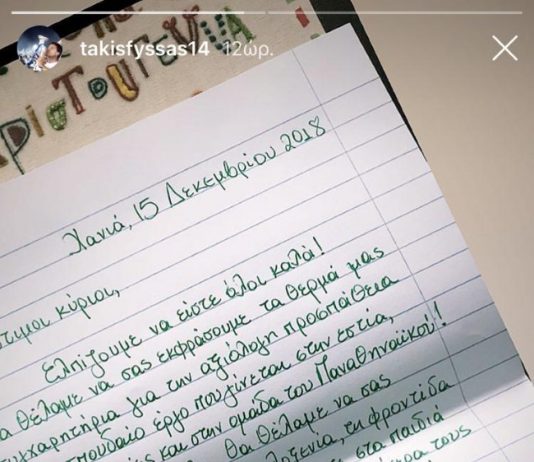 takisfyssas14 12ώρ.
ΧΡΙΣΤΟΥΓΕΝΝΑ
Χανιά, 15 Δεκεμβρίου 2018
κύριοι,
Ελπίζουμε να είστε όλοι καλά!
θέλαμε να σας εκφράσουμε τα θερμά μας
για την αξιόλογη προσπάθεια
έργο που γίνεται στην εστία,
και στην ομάδα του Παναθηναϊκού!
θα θέλαμε να σας
τη φροντίδα
στα παιδιά
τους